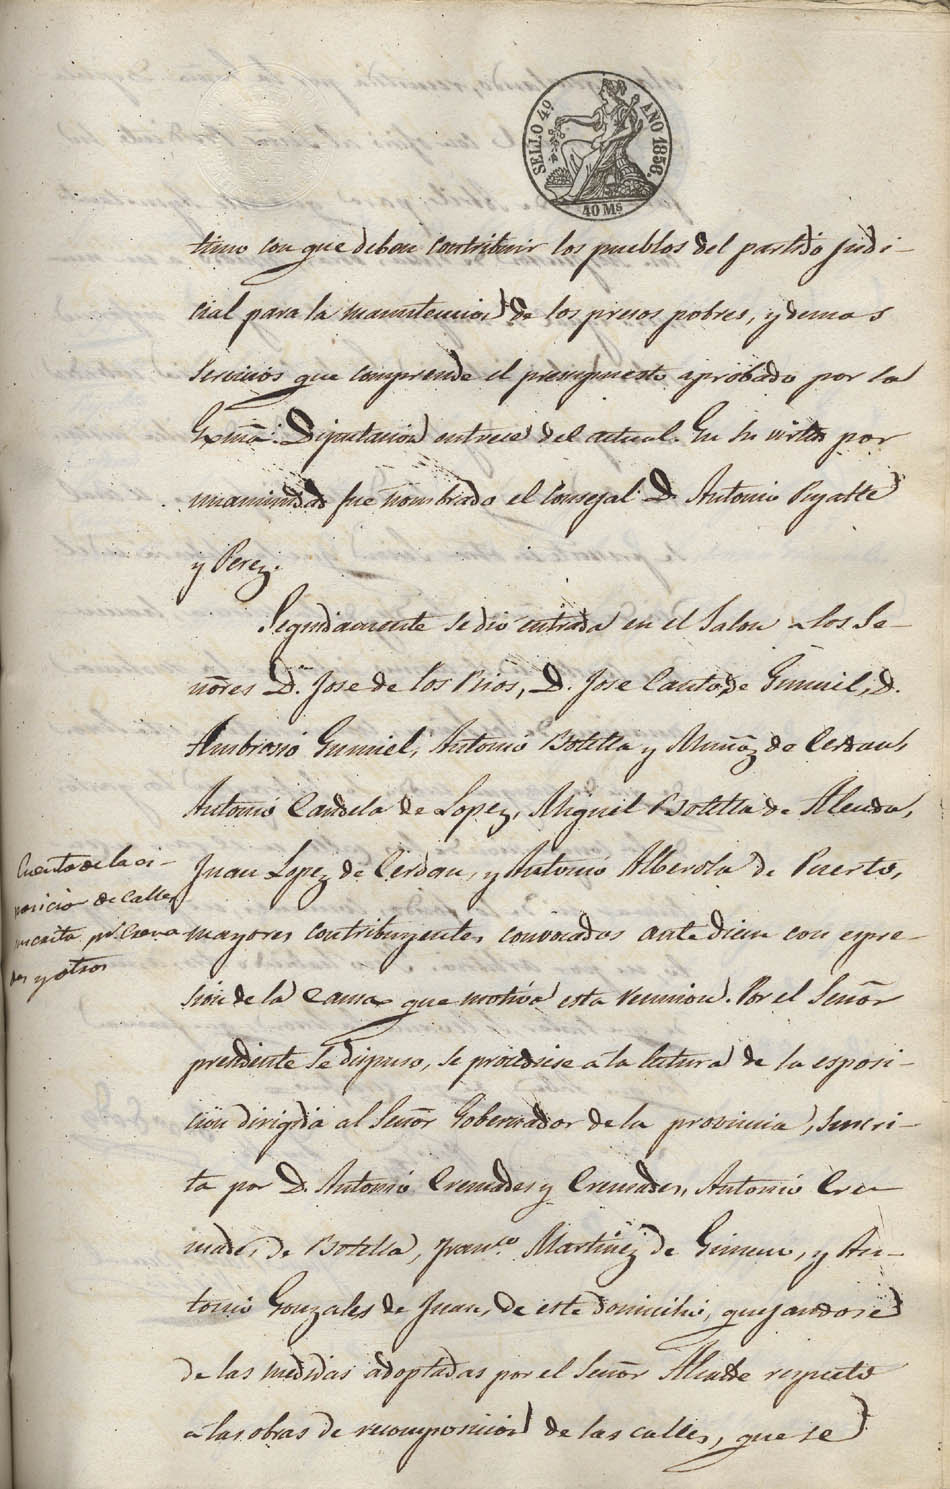 SELLO 4º AÑO 1856.
40 Ms
timo con que deban contribuir los pueblos del partido judi-
cial para la manutencion de los presos pobres, y demas
servicios que comprende el presupuesto aprobado por la
Exmã. Diputacion en trece del actual. En su virtud por
unanimidad fue nombrado el Consejal D. Antonio Puyalte
y Perez.
Seguidamente se dio entrada en el Salon a los Se-
ñores D. Jose de los Rios, D. Jose Canto de Gumiel, D.
Ambrosio Gumiel, Antonio Botella y Muñoz de Cerdan,
Antonio Candela de Lopez, Miguel Botella de Alenda,
Juan Lopez de Cerdan, y Antonio Alberola de Puerto,
mayores contribuyentes, convocados ante diem con espre-
sion de la causa que motiva esta reunion. Por el Señor
presidente se dispuso, se procediese a la lectura de la esposi-
cion dirigida al Señor Gobernador de la provincia, suscri-
ta por D. Antonio Cremades y Cremades, Antonio Cre-
mades de Botella, Franco. Martinez de Gimeno, y An-
tonio Gonzales de Juan, de este domicilio, quejandose
de las medidas adoptadas por el Señor Alcalde respecto
a las obras de recomposicion de las calles, que se
Cuenta de la es-
posicion de calles
suscrita pr. Crema
des y otros